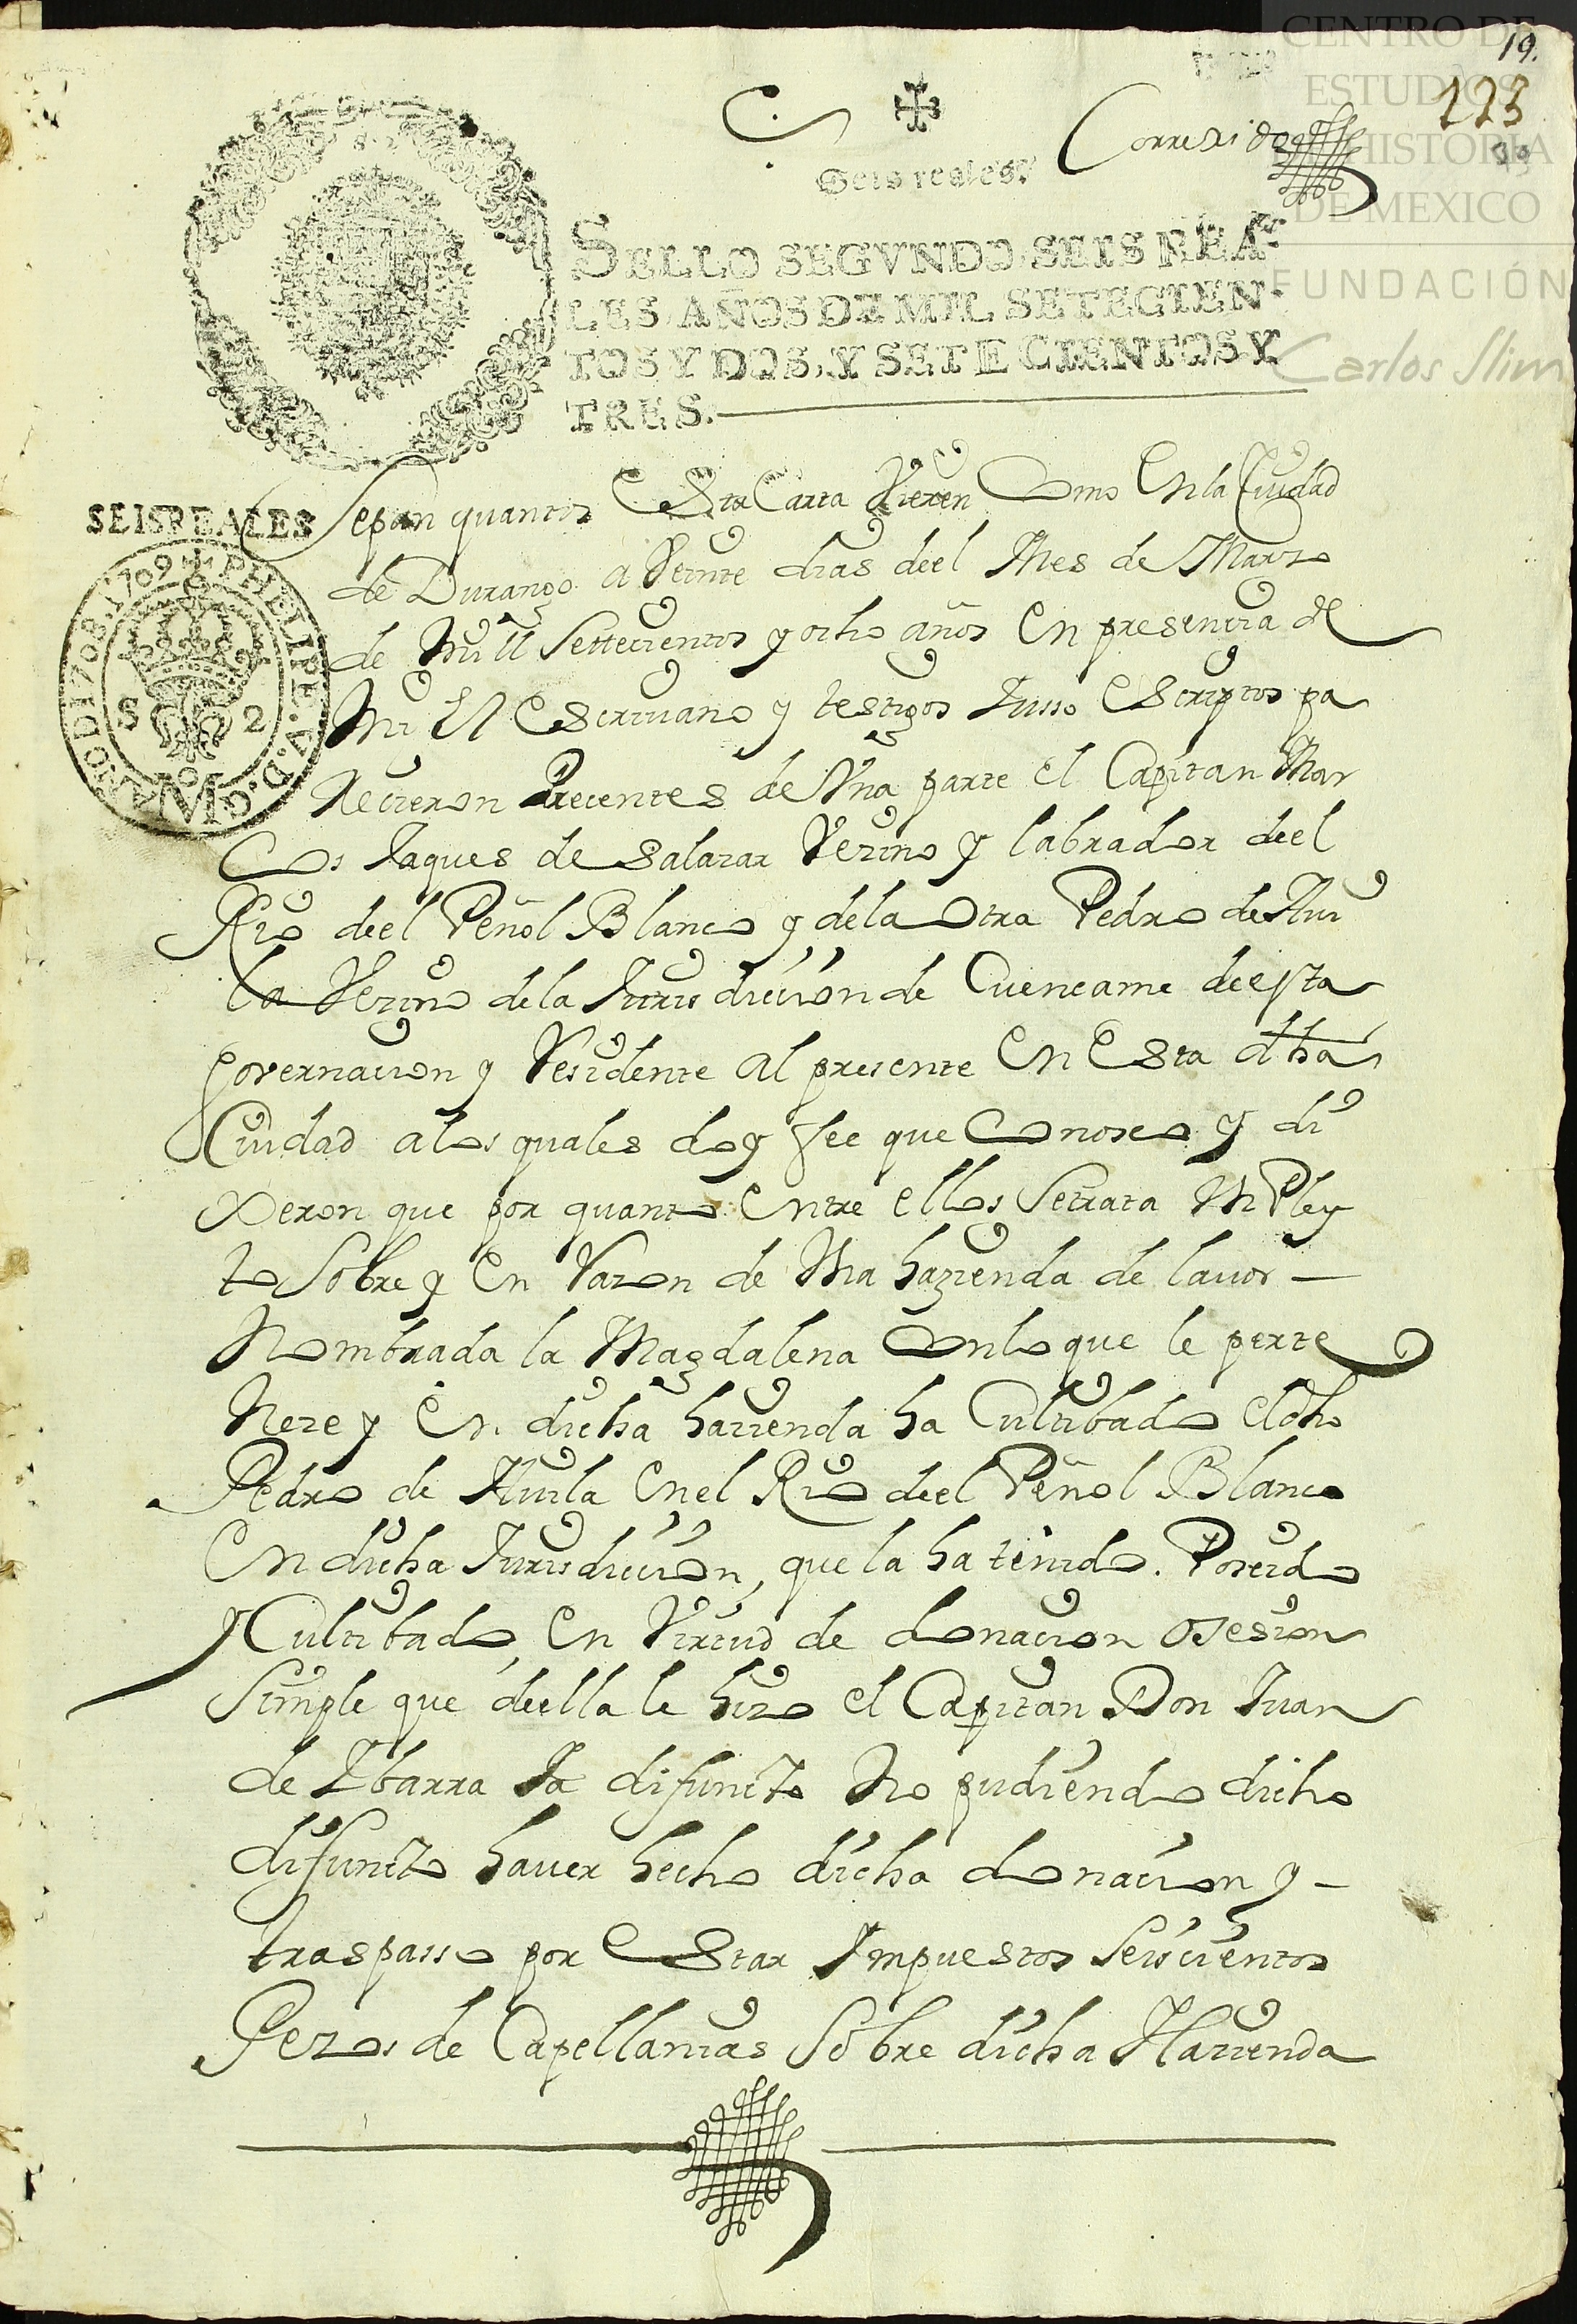 CENTRO DE
ESTUDIOS
DE HISTORIA
DE MEXICO
FUNDACIÓN
Carlos Slim
19.
123
Correxido
Seis reales.
SELLO SEGVNDO, SEIS REA-
LES, AÑOS DE MIL SETECIEN-
TOS Y DOS, Y SETECIENTOS Y
TRES.
SEIS REALES
PHELIPE. V. D. G. AÑO D 1708. 1709
S 2
Sepan quantos Esta Carta Vieren Como En la Ciudad
de Durango a Veinte dias deel Mes de Marzo
de Mill Settecientos y ocho años En presencia de
Mi El Escrivano y testigos Yusso Escriptos pa
Recieron Precentes de Vna parte el Capitan Mar
Cos Jaques de Salazar Vezino y labrador deel
Rio deel Peñol Blanco y de la Otra Pedro de Aui
la Vezino de la Jurisdiccion de Cuencame de esta
Governacion y Residente al presente En Esta dha
Ciudad a los quales doy fee que Conosco y di
Xeron que por quanto Entre ellos Se trata Vn Pley
to Sobre y En Razon de Vna hazienda de lauor —
Nombrada la Magdalena Con lo que le perte
Neze y En dicha hazienda ha Cultibado el dho
Pedro de Auila En el Rio deel Peñol Blanco
En dicha Jurisdiccion, que la ha tenido. Poseido
y Cultibado, En Virtud de donacion o Sesion
Simple que deella le hizo el Capitan Don Juan
de Ybarra Ya difuncto No pudiendo dicho
difuncto hauer hecho dicha donacion y —
traspasso por Estar Ympuestos Seiscientos
Pezos de Capellanias Sobre dicha Hazienda